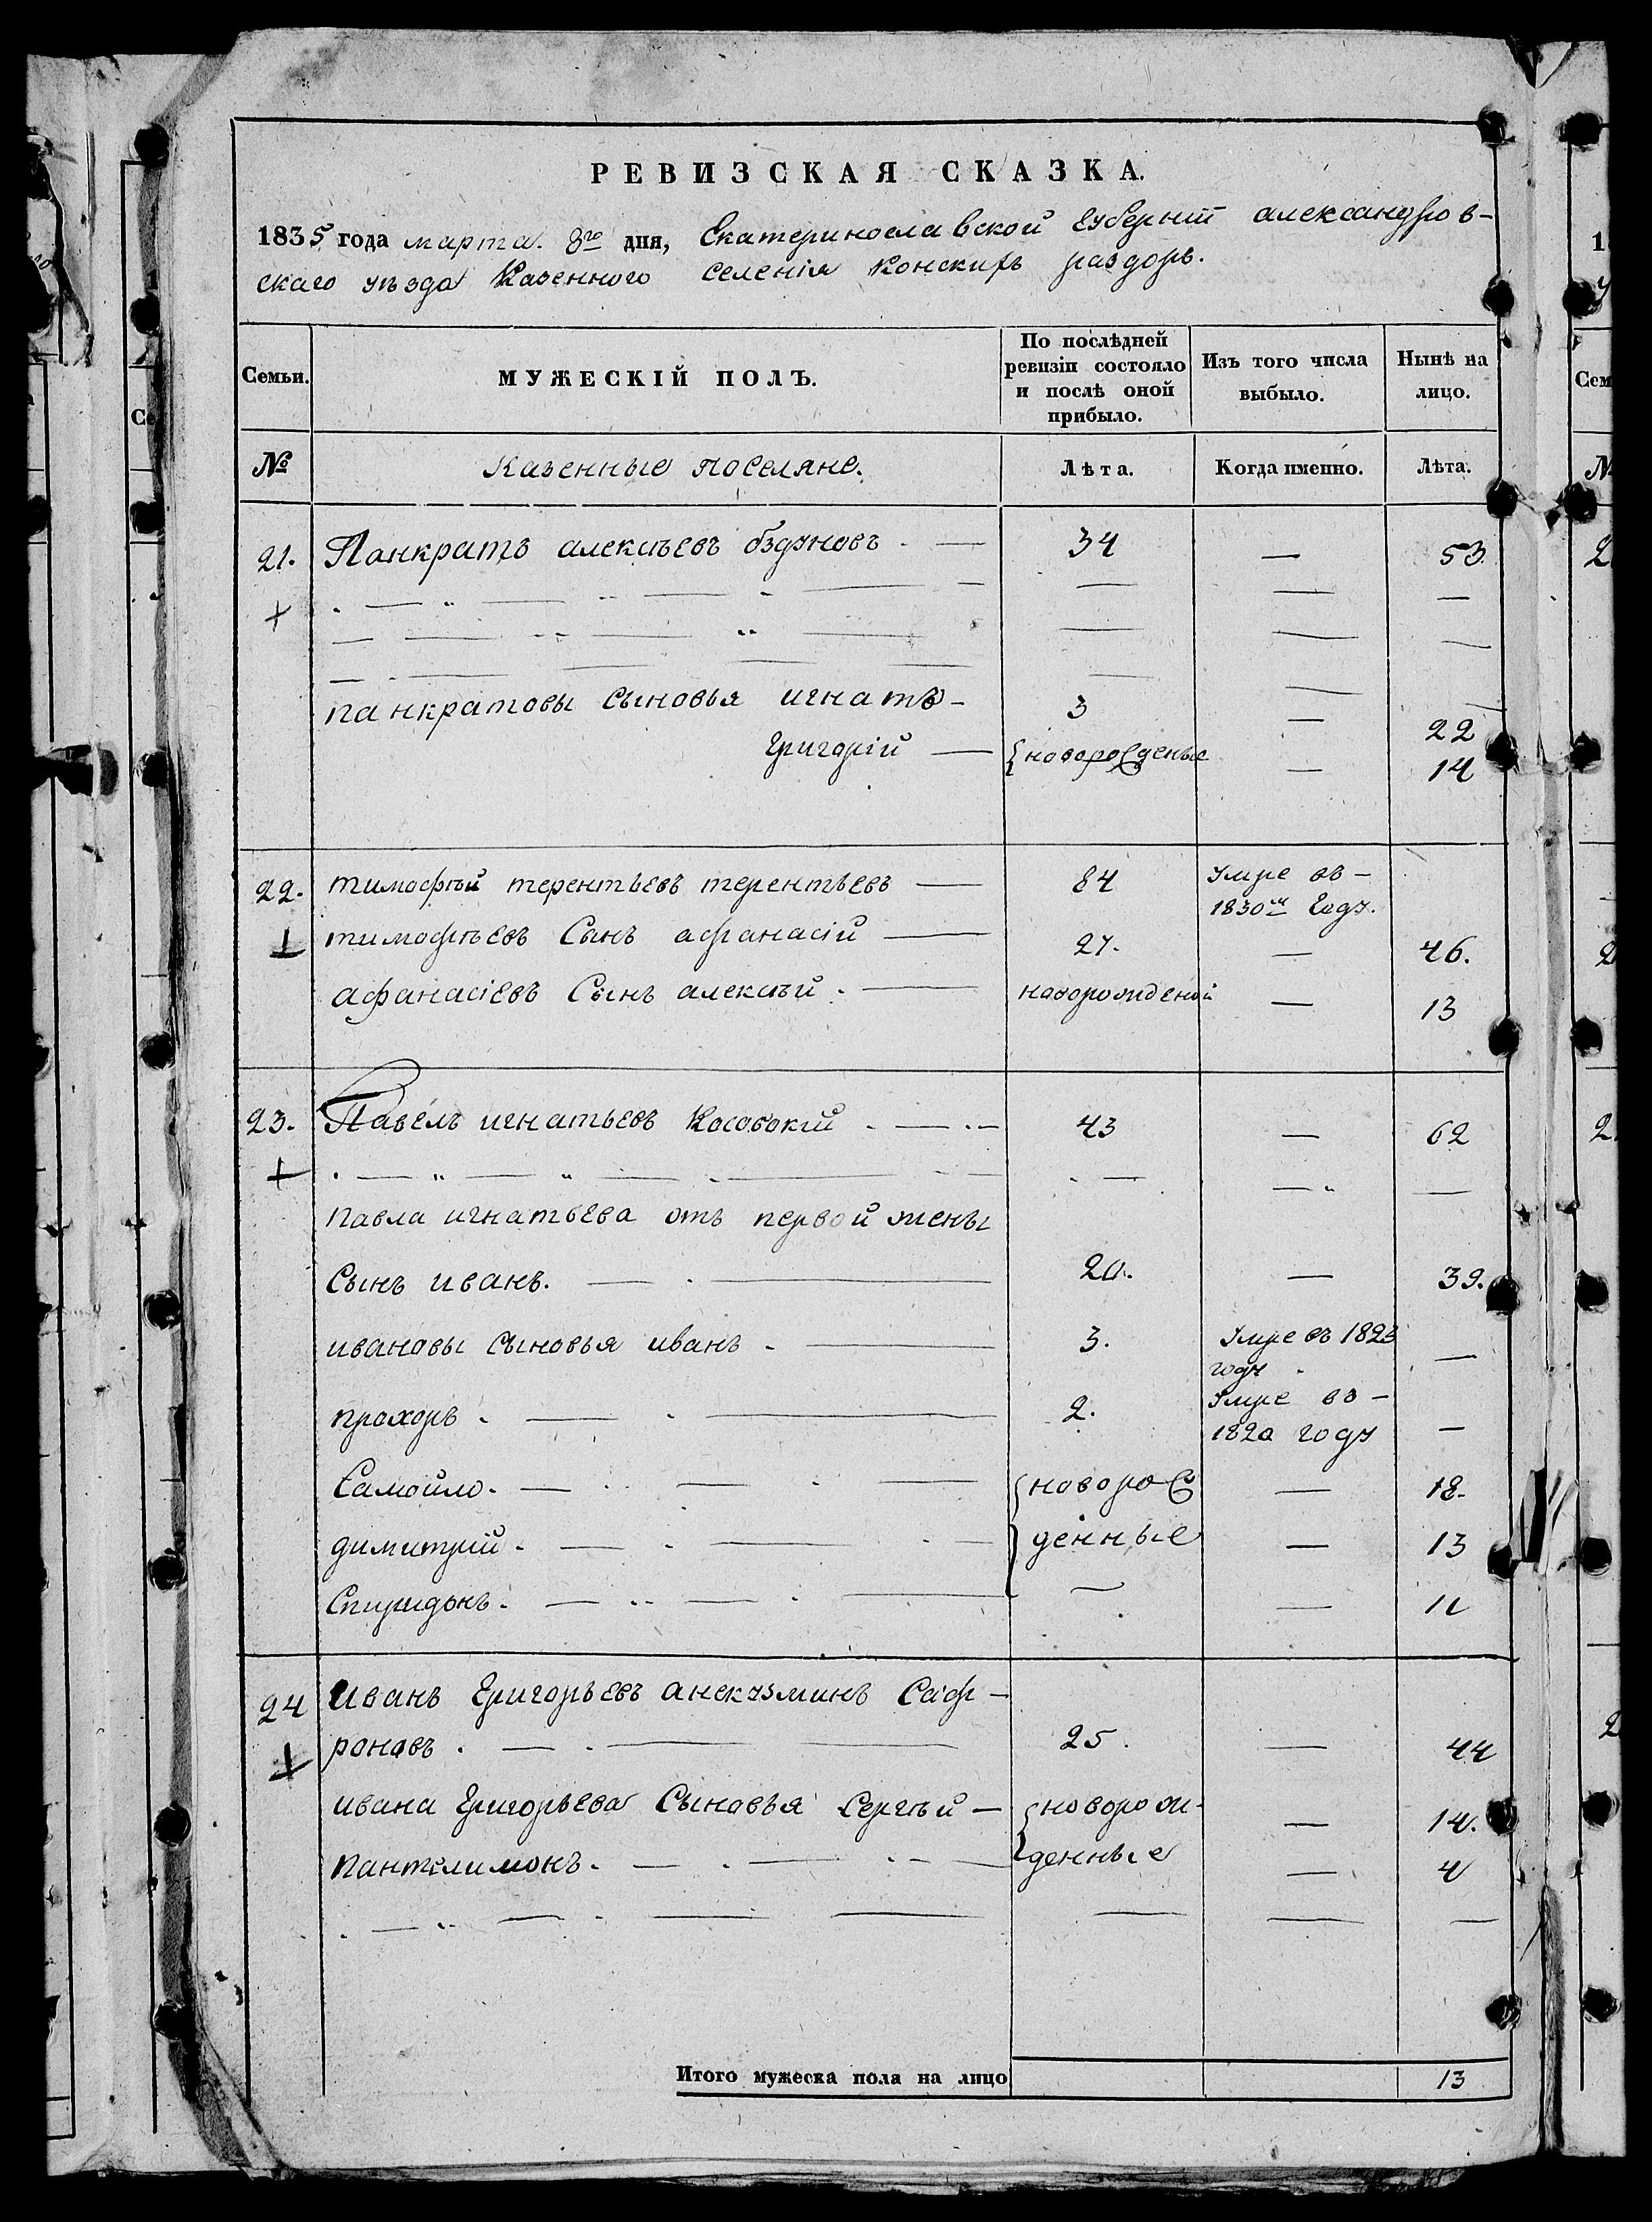 РЕВИЗСКАЯ СКАЗКА.
1835 года марта 8го дня, Екатеринославской Губерніи александров-
скаго уѣзда Казенного селенія Конскихъ раздоръ.
Семьи. МУЖЕСКІЙ ПОЛЪ. По послѣдней ревизіи состояло и послѣ оной прибыло. Изъ того числа выбыло. Нынѣ на лицо.
№ Казенные поселяне. Лѣта. Когда именно. Лѣта.
21. Панкратъ алексѣевъ бздуновъ - — 34 — 53.
панкратовы сыновья игнатъ - 3 — 22
Григорій — новорожденые — 14
22. тимофѣй терентьевъ терентьевъ — 84 Умре въ -
1830м Году.
тимофѣевъ Сынъ афанасій — 27. — 46.
афанасіевъ Сынъ алексѣй. — новорожденой — 13
23. Павелъ игнатьевъ Косовокій 43 — 62
павла игнатьева отъ первой жены
Сынъ иванъ. — 20. — 39.
ивановы сыновья иванъ - — 3. Умре въ 1823 —
году
прохоръ. — 2. Умре въ -
1820 году —
Самойло. — новорож — 18.
димитрій. — денные — 13
Спиридонъ. — — 11
24 Иванъ Григорьевъ анекузминъ Саф-
роновъ. — 25. — 44
ивана Григорьева Сыновья Сергѣй — новорож- — 14.
пантелимонъ. — денные — 4
Итого мужеска пола на лицо 13